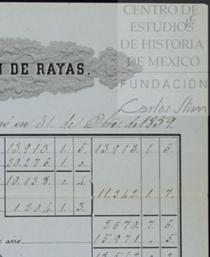 CENTRO DE
ESTUDIOS
DE HISTORIA
DE MEXICO
FUNDACIÓN
Carlos Slim
N DE RAYAS.
en 31 de Dbre. de 1859
13,913. 1. 6. 13,913. 1. 6.
20,276. 1. 0.
10,138. 0. 4.
11,342. 1. 7.
1,204. 1. 3.
2570. 7. 6.
15,971. 0. 5.